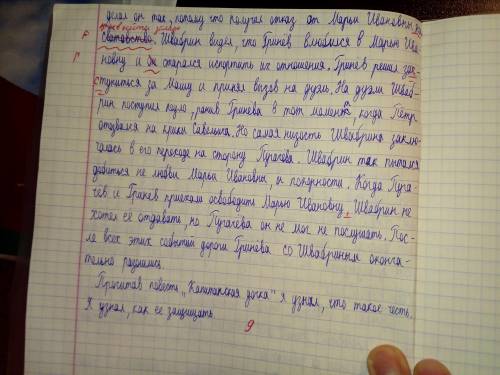 делал он так, потому что получил отказ от Марьи Ивановны
сватовство. Швабрин видел, что Гринёв влюбился в Марью Ива
Р
новну и он старался испортить их отношения. Гринёв решил зас-
Г
ступиться за Машу и принял вызов на дуэль. На дуэли Шваб-
рин поступил подло, ранив Гринёва в тот момент, когда Пётр
отозвался на крики Савельича. Но самая низость Швабрина заклю-
чалась в его переходе на сторону Пугачёва. Швабрин так пытался
добиться не любви Марьи Ивановны, а покорности. Когда Пуга-
чёв и Гринёв приехали освободить Марью Ивановну, Швабрин не
хотел её отдавать, но Пугачёва он не мог не послушать. Пос-
ле всех этих событий дороги Гринёва со Швабриным оконча-
тельно разошлись.
Прочитав повесть "Капитанская дочка" я узнал, что такое честь.
Я узнал, как её защищать
9